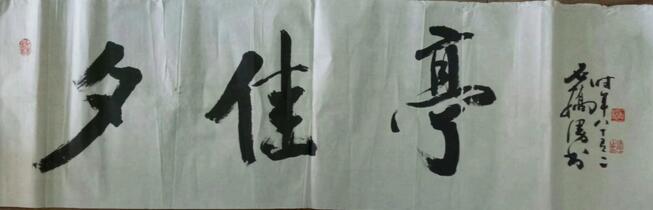 夕佳亭
时年八十有二